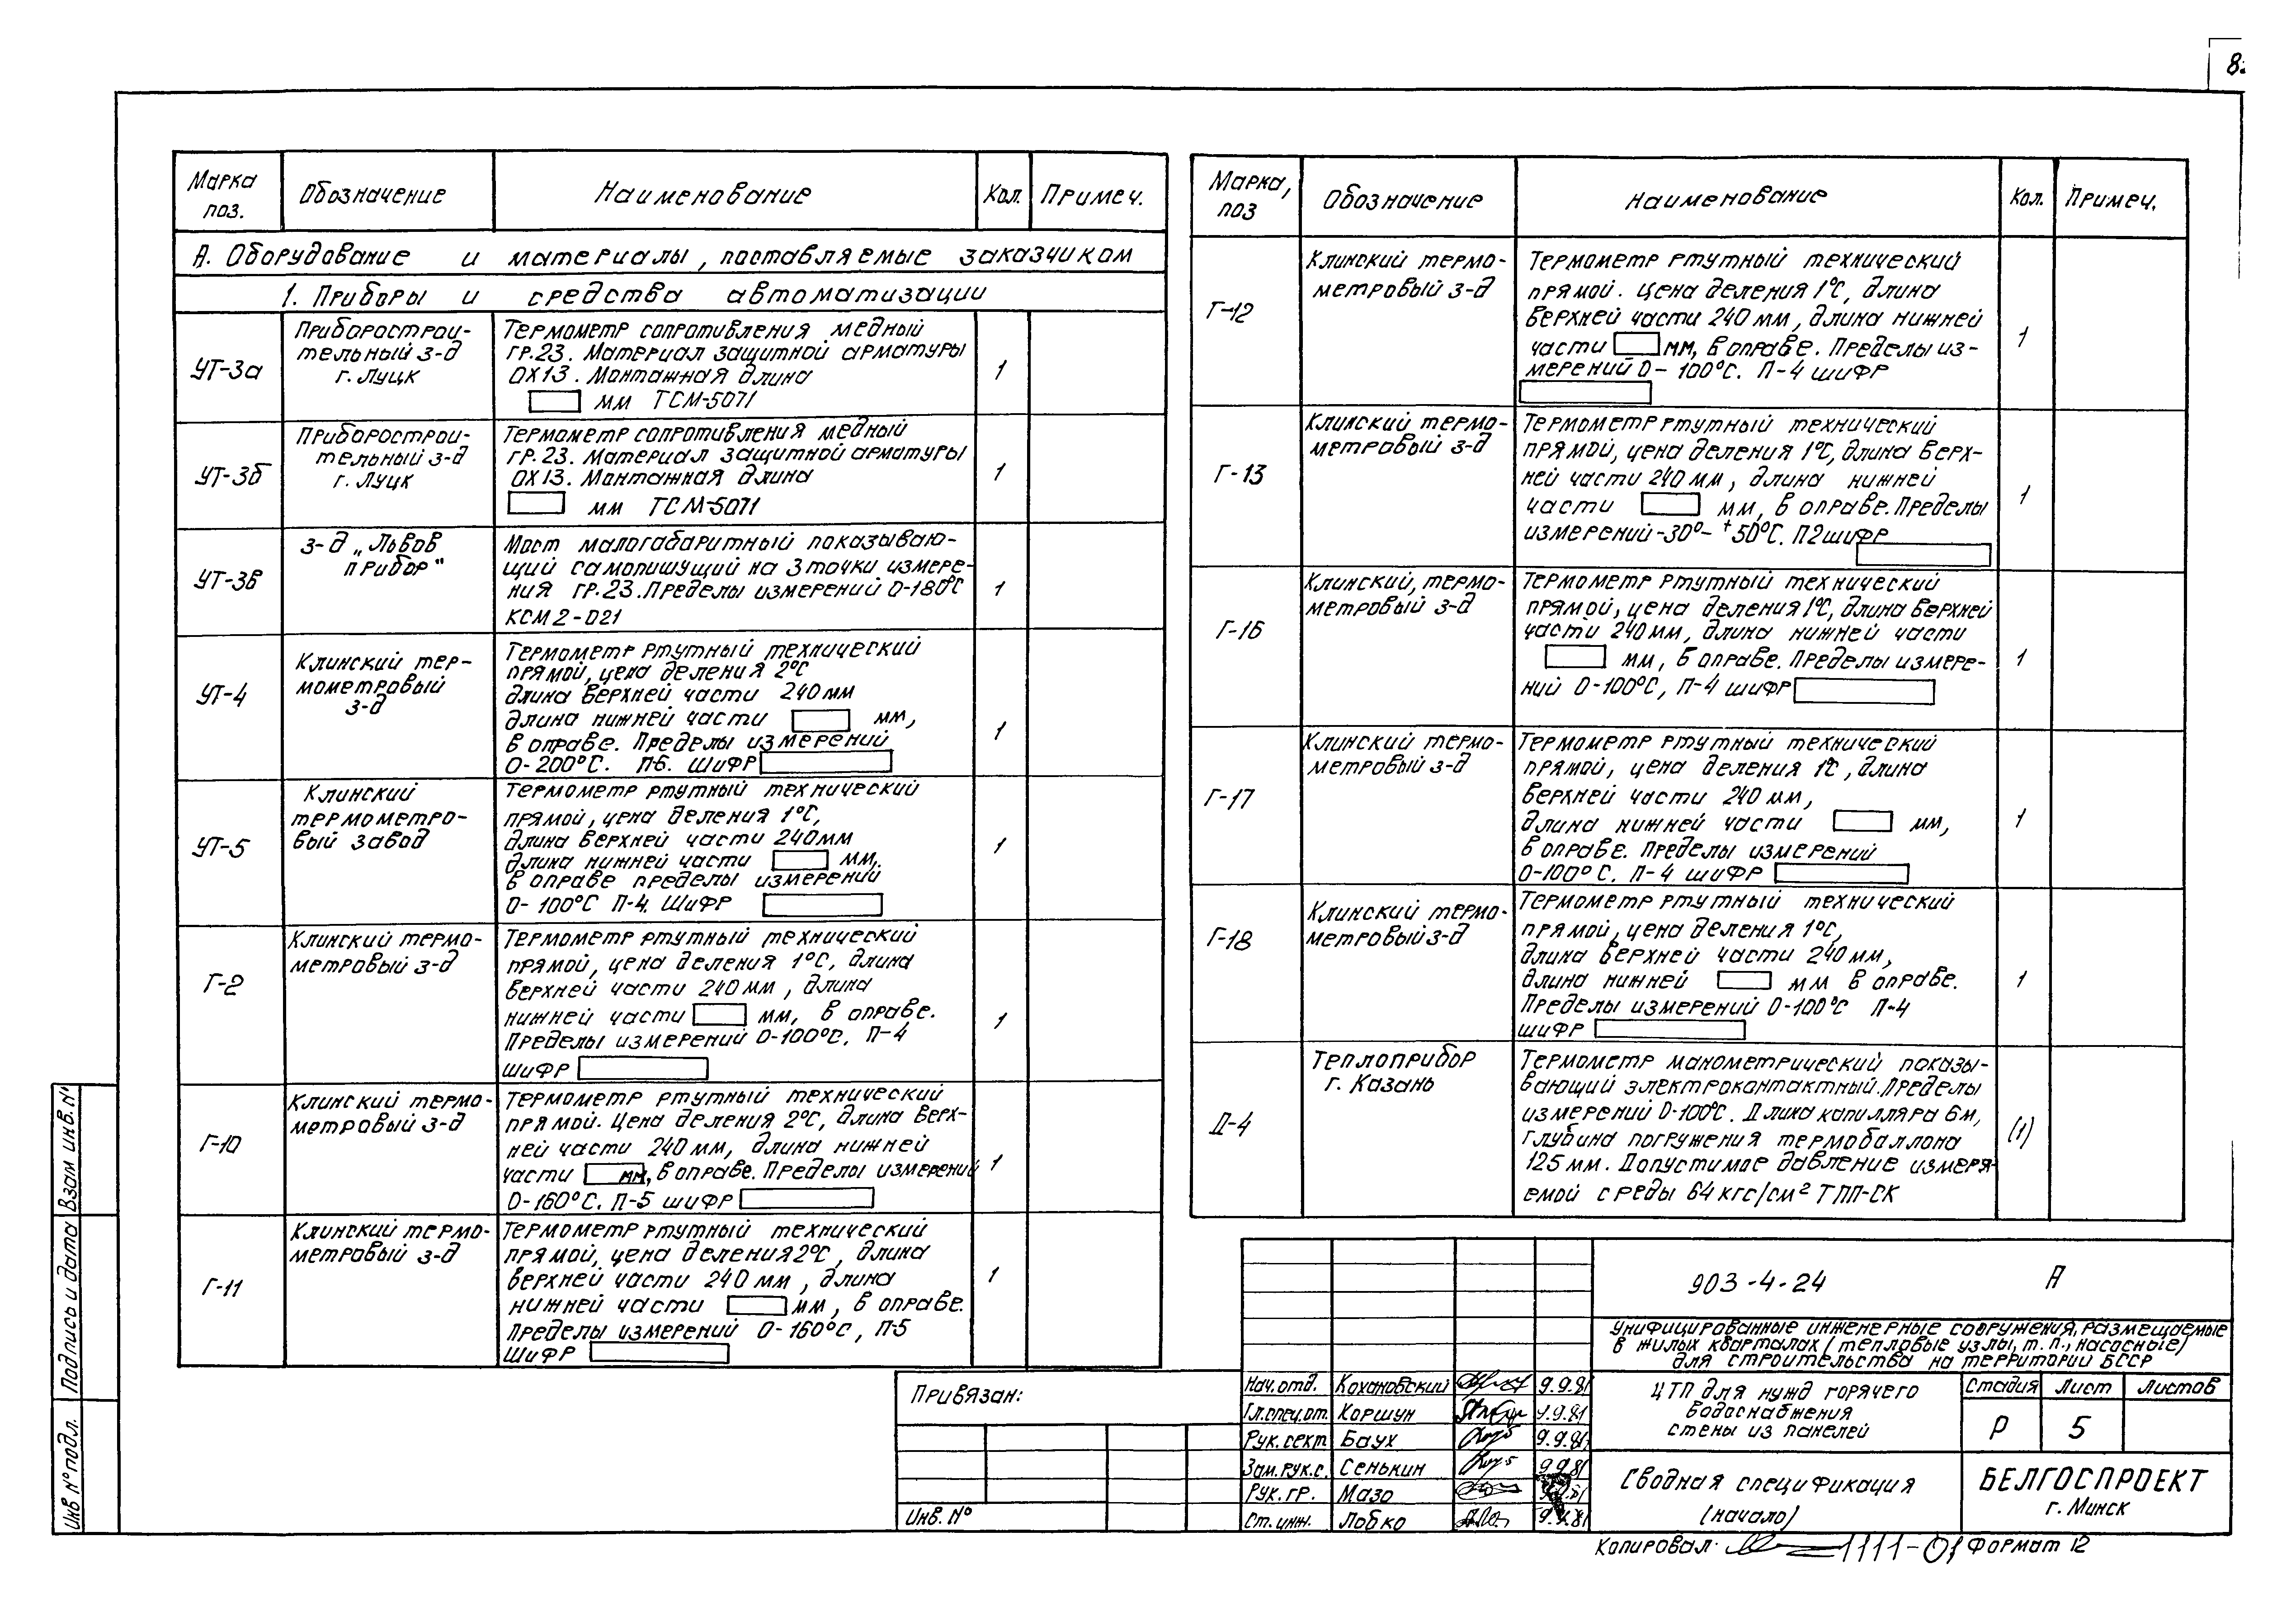 Марка поз. Обозначение Наименование Кол. Примеч.
А. Оборудование и материалы, поставляемые заказчиком
1. Приборы и средства автоматизации
УТ-3а
Приборострои-
тельный з-д
г. Луцк
Термометр сопротивления медный
гр.23. Материал защитной арматуры
ОХ13. Монтажная длина
мм ТСМ-5071
1
УТ-3б
Приборострои-
тельный з-д
г. Луцк
Термометр сопротивления медный
гр.23. Материал защитной арматуры
ОХ13. Монтажная длина
мм ТСМ-5071
1
УТ-3в
з-д „Львов
прибор"
Мост малогабаритный показываю-
щий самопишущий на 3 точки измере-
ния гр.23. Пределы измерений 0-180°С
КСМ2-021
1
УТ-4
Клинский тер-
мометровый
з-д
Термометр ртутный технический
прямой, цена деления 2°С
длина верхней части 240 мм
длина нижней части мм,
в оправе. Пределы измерений
0-200°С. П-6. шифр
1
УТ-5
Клинский
термометро-
вый завод
Термометр ртутный технический
прямой, цена деления 1°С,
длина верхней части 240мм
длина нижней части мм.
в оправе пределы измерений
0-100°С П-4. шифр
1
Г-2
Клинский термо-
метровый з-д
Термометр ртутный технический
прямой, цена деления 1°С, длина
верхней части 240 мм, длина
нижней части мм, в оправе.
Пределы измерений 0-100°С. П-4
шифр
1
Г-10
Клинский термо-
метровый з-д
Термометр ртутный технический
прямой. Цена деления 2°С, длина верх-
ней части 240 мм, длина нижней
части мм, в оправе. Пределы измерений
0-160°С. П-5 шифр
1
Г-11
Клинский термо-
метровый з-д
Термометр ртутный технический
прямой, цена деления 2°С, длина
верхней части 240 мм, длина
нижней части мм, в оправе.
Пределы измерений 0-160°С, П-5
шифр
1
Марка, поз Обозначение Наименование Кол. Примеч.
Г-12
Клинский термо-
метровый з-д
Термометр ртутный технический
прямой. Цена деления 1°С, длина
верхней части 240 мм, длина нижней
части мм, в оправе. Пределы из-
мерений 0-100°С. П-4 шифр
1
Г-13
Клинский термо-
метровый з-д
Термометр ртутный технический
прямой, цена деления 1°С, длина верх-
ней части 240 мм, длина нижней
части мм, в оправе. Пределы
измерений -30°- +50°С. П2 шифр
1
Г-16
Клинский, термо-
метровый з-д
Термометр ртутный технический
прямой, цена деления 1°С, длина верхней
части 240 мм, длина нижней части
мм, в оправе. Пределы измере-
ний 0-100°С, П-4 шифр
1
Г-17
Клинский термо-
метровый з-д
Термометр ртутный технический
прямой, цена деления 1°С, длина
верхней части 240 мм,
длина нижней части мм,
в оправе. Пределы измерений
0-100°С. П-4 шифр
1
Г-18
Клинский термо-
метровый з-д
Термометр ртутный технический
прямой, цена деления 1°С,
длина верхней части 240 мм,
длина нижней мм в оправе.
Пределы измерений 0-100°С П-4
шифр
1
Д-4
Теплоприбор
г. Казань
Термометр манометрический показы-
вающий электроконтактный. Пределы
измерений 0-100°С. Длина капилляра 6м,
глубина погружения термобаллона
125 мм. Допустимое давление измеря-
емой среды 64 кгс/см² ТПП-СК
(1)
903-4-24 А
Унифицированные инженерные сооружения, размещаемые
в жилых кварталах (тепловые узлы, т.п., насосные)
для строительства на территории БССР
Нач.отд. Кохановский 9.9.81
Гл.спец.от. Коршун 9.9.81
Рук.сект. Баух 9.9.81
Зам.рук.с. Сенькин 9.9.81
Рук.гр. Мазо
Ст.инж. Лобко 9.9.81
ЦТП для нужд горячего
водоснабжения
стены из панелей
Стадия Лист Листов
Р 5
Сводная спецификация
(начало)
БЕЛГОСПРОЕКТ
г. Минск
Привязан:
Инв. №
Взам инв. №
Подпись и дата
Инв № подл.
Копировал: 1111-01 Формат 12